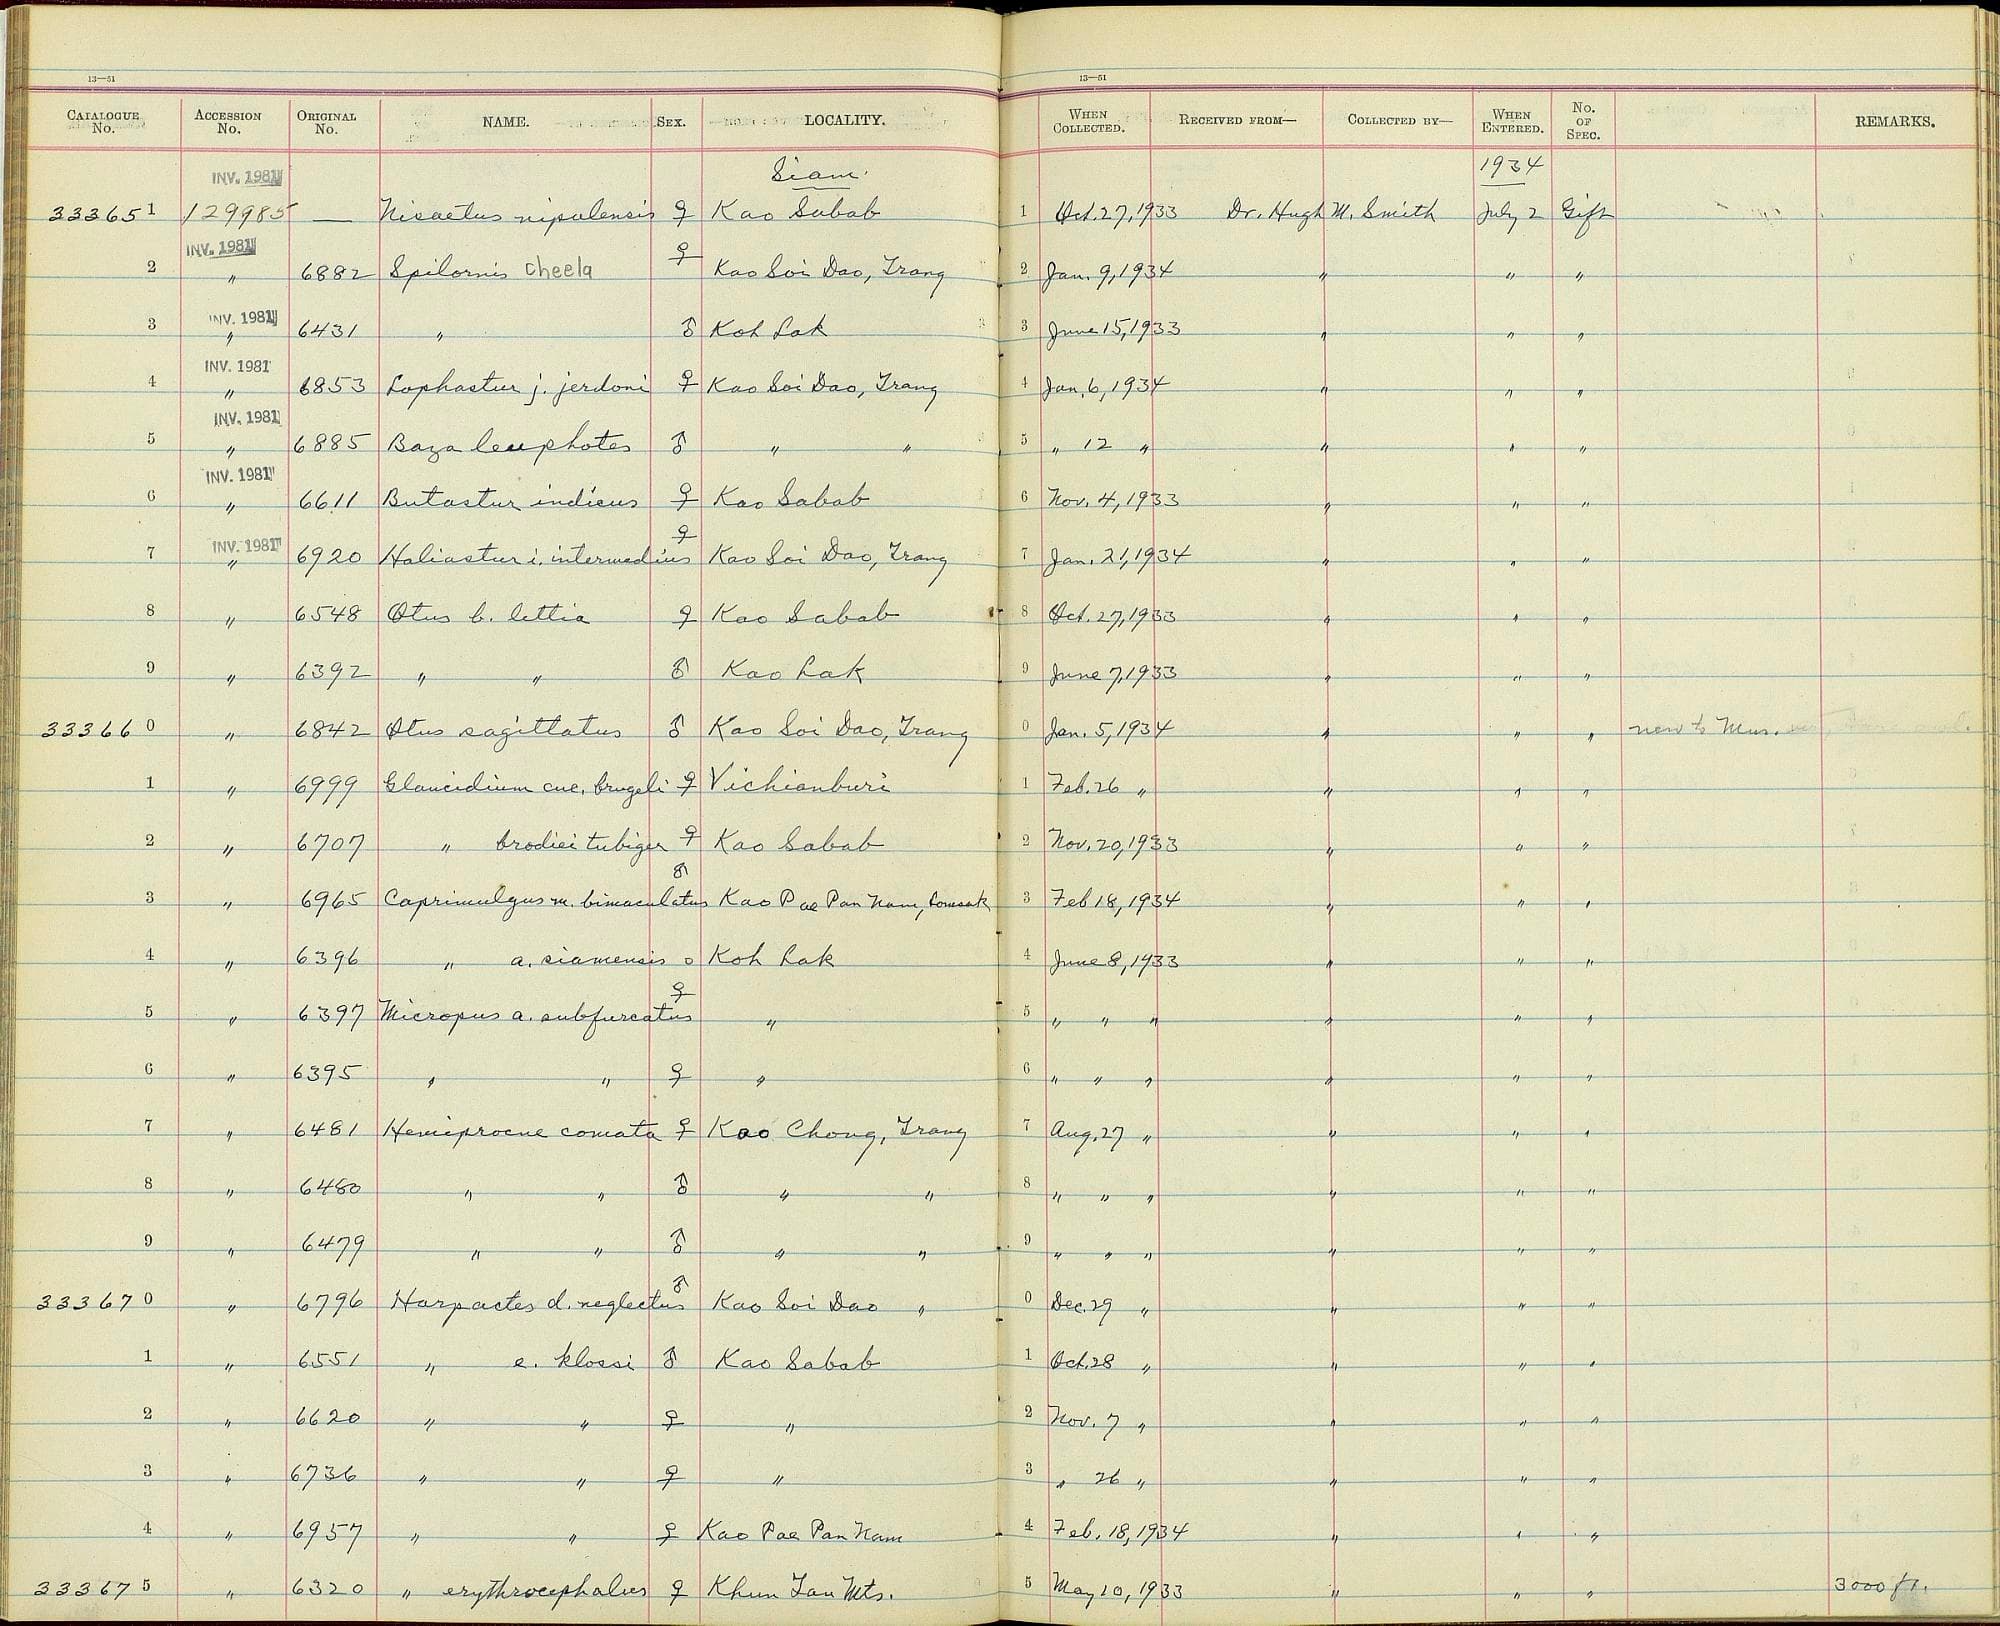 13—51 13—51
CATALOGUE No. ACCESSION No. ORIGINAL No. NAME. SEX. LOCALITY. WHEN COLLECTED. RECEIVED FROM— COLLECTED BY— WHEN ENTERED. No. OF SPEC. REMARKS.
INV. 1981 Siam. 1934
33365 1 129985 — Nisaetus nipalensis ♀ Kao Sabab 1 Oct. 27, 1933 Dr. Hugh M. Smith July 2 Gift
INV. 1981
2 " 6882 Spilornis cheela ♀ Kao Soi Dao, Trang 2 Jan. 9, 1934 " " "
INV. 1981
3 " 6431 " ♂ Koh Lak 3 June 15, 1933 " " "
INV. 1981
4 " 6853 Lophastur j. jerdoni ♀ Kao Soi Dao, Trang 4 Jan. 6, 1934 " " "
INV. 1981
5 " 6885 Baza leuphotes ♂ " " 5 " 12 " " " "
INV. 1981
6 " 6611 Butastur indicus ♀ Kao Sabab 6 Nov. 4, 1933 " " "
INV. 1981
7 " 6920 Haliastur i. intermedius ♀ Kao Soi Dao, Trang 7 Jan. 21, 1934 " " "
8 " 6548 Otus b. lettia ♀ Kao Sabab 8 Oct. 27, 1933 " " "
9 " 6392 " " ♂ Kao Lak 9 June 7, 1933 " " "
33366 0 " 6842 Otus sagittatus ♂ Kao Soi Dao, Trang 0 Jan. 5, 1934 " " " new to Mus.
1 " 6999 Glaucidium cuc. brugeli ♀ Vichianburi 1 Feb. 26 " " " "
2 " 6707 " brodiei tubiger ♀ Kao Sabab 2 Nov. 20, 1933 " " "
3 " 6965 Caprimulgus m. bimaculatus ♂ Kao Pae Pan Nam, Lomsak 3 Feb 18, 1934 " " "
4 " 6396 " a. siamensis o Koh Lak 4 June 8, 1933 " " "
5 " 6397 Micropus a. subfurcatus ♀ " 5 " " " " " "
6 " 6395 " " ♀ " 6 " " " " " "
7 " 6481 Hemiprocne comata ♀ Kao Chong, Trang 7 Aug. 27 " " " "
8 " 6480 " " ♂ " " 8 " " " " " "
9 " 6479 " " ♂ " " 9 " " " " " "
33367 0 " 6796 Harpactes d. neglectus ♂ Kao Soi Dao " 0 Dec. 29 " " " "
1 " 6551 " e. klossi ♂ Kao Sabab 1 Oct. 28 " " " "
2 " 6620 " " ♀ " 2 Nov. 7 " " " "
3 " 6736 " " ♀ " 3 " 26 " " " "
4 " 6957 " " ♀ Kao Pae Pan Nam 4 Feb. 18, 1934 " " "
33367 5 " 6320 " erythrocephalus ♀ Khun Tan Mts. 5 May 10, 1933 " " " 3000 ft.